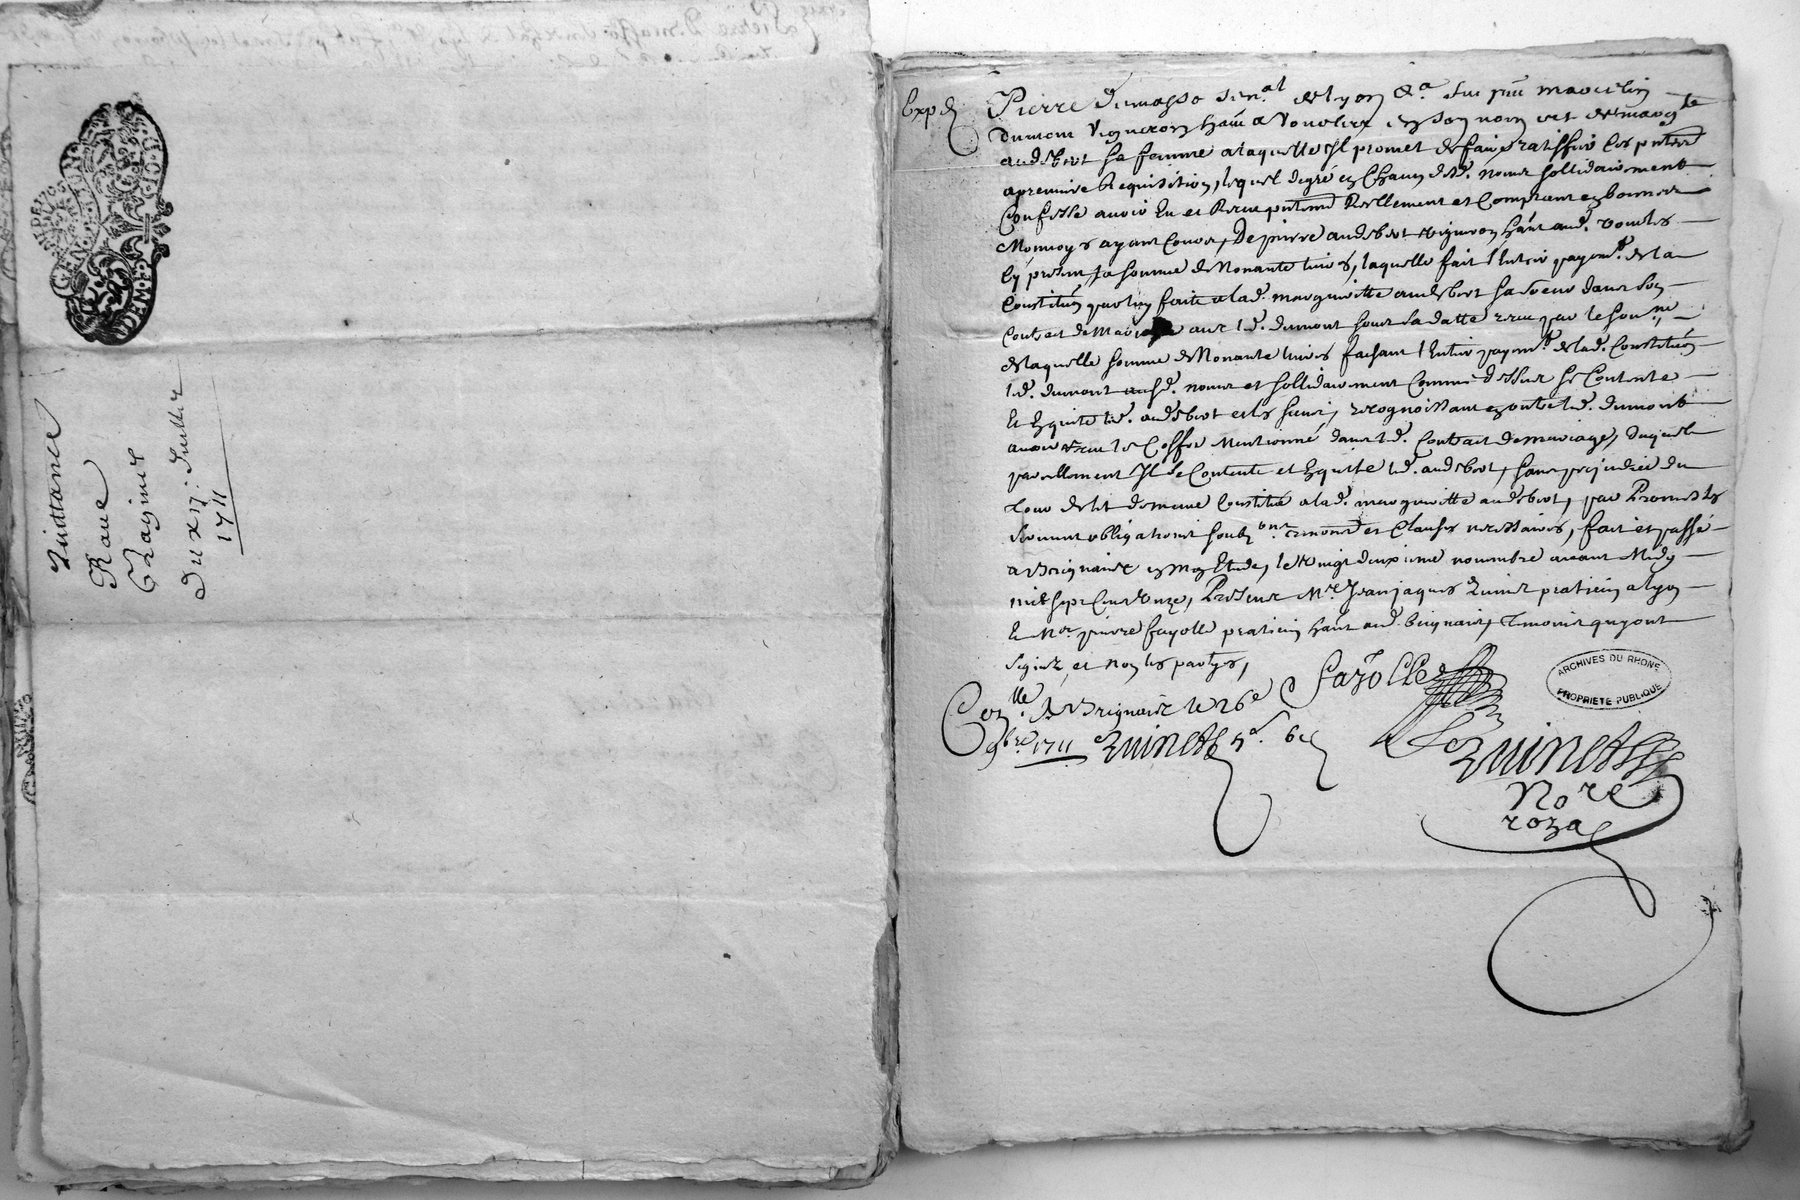 GEN
DEM F
Quittance
Rave
Du xij: Juillet
1711
Exped
Pierre Dumasso Sen.al de lyon &a. fut pnt
Dumont Vigneron hant a Vourles en son nom et de marg.te
audebert sa femme a laquelle Il promet de faire ratiffier les pntes
a premiere Requisition, lequel de gré esd. noms sollidairement
Confesse avoir Eu et Receu pntement Reellement et Comptant en bonnes
Monnoys ayant Cours, De pierre audebert vigneron hant aud. vourles
Cy present, la somme de Nonante livres, laquelle fait l'Entier payemt. de la
Constituon par luy faite a lad. margueritte audebert sa soeur dans son
Contract de avec led. dumont sous sa datte receu par le sousne.
de laquelle somme de Nonante livres faisant l'Entier payemt. de lad. Constituon
led. dumont noms et sollidairement Comme dessus se Contente
Et Equitte led. audebert et les siens, recognoissant en outre led. dumont
avoir receu le Coffre Mentionné dans led. Contract de mariage, duquel
pareillement Il se Contente et Equitte led. audebert, sans prejudice du
de lit de mesme Constitué a lad. margueritte audebert, par Promesses
serment obligations soubz.ons renonce. et Clauses necessaires, fait et passé
a Brignaix en mon Etude, le vingt deuxieme novembre avant Midy
mil sept Cent Onze, Presents Mre. Jean jaques Quinet praticien a lyon
Et Mre. pierre fayolle praticien hant aud. brignaix, temoins qui ont
signez, et non les partyes,
Fayolle
Con.lle A Brignaix le 26e
9bre. 1711 Quinet
Quinet
Nore
roya
ARCHIVES DU RHONE
PROPRIETE PUBLIQUE